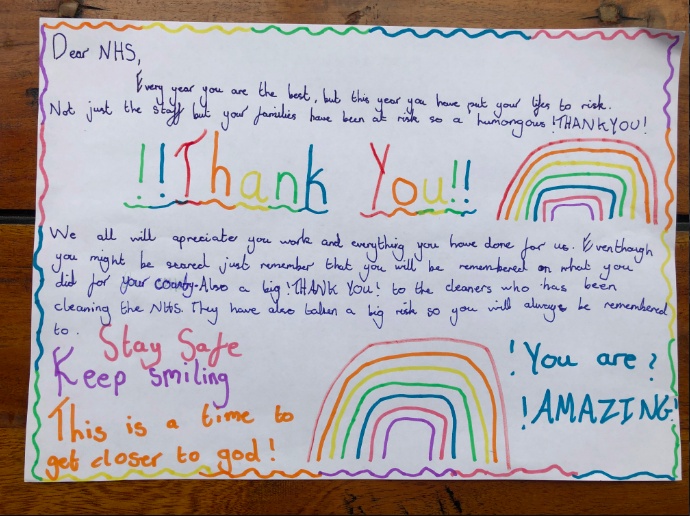 Dear NHS,
Every year you are the best, but this year you have put your lifes to risk.
Not just the staff but your families have been at risk so a humongous !THANKYOU!
!!Thank You!!
We all will apreciate you work and everything you have done for us. Eventhough
you might be scared just remember that you will be remembered on what you
did for your county. Also a big !THANK YOU! to the cleaners who has been
cleaning the NHS. They have also taken a big risk so you will always be remembered
to.
Stay Safe
Keep smiling
This is a time to
get closer to god!
!You are?
!AMAZING!